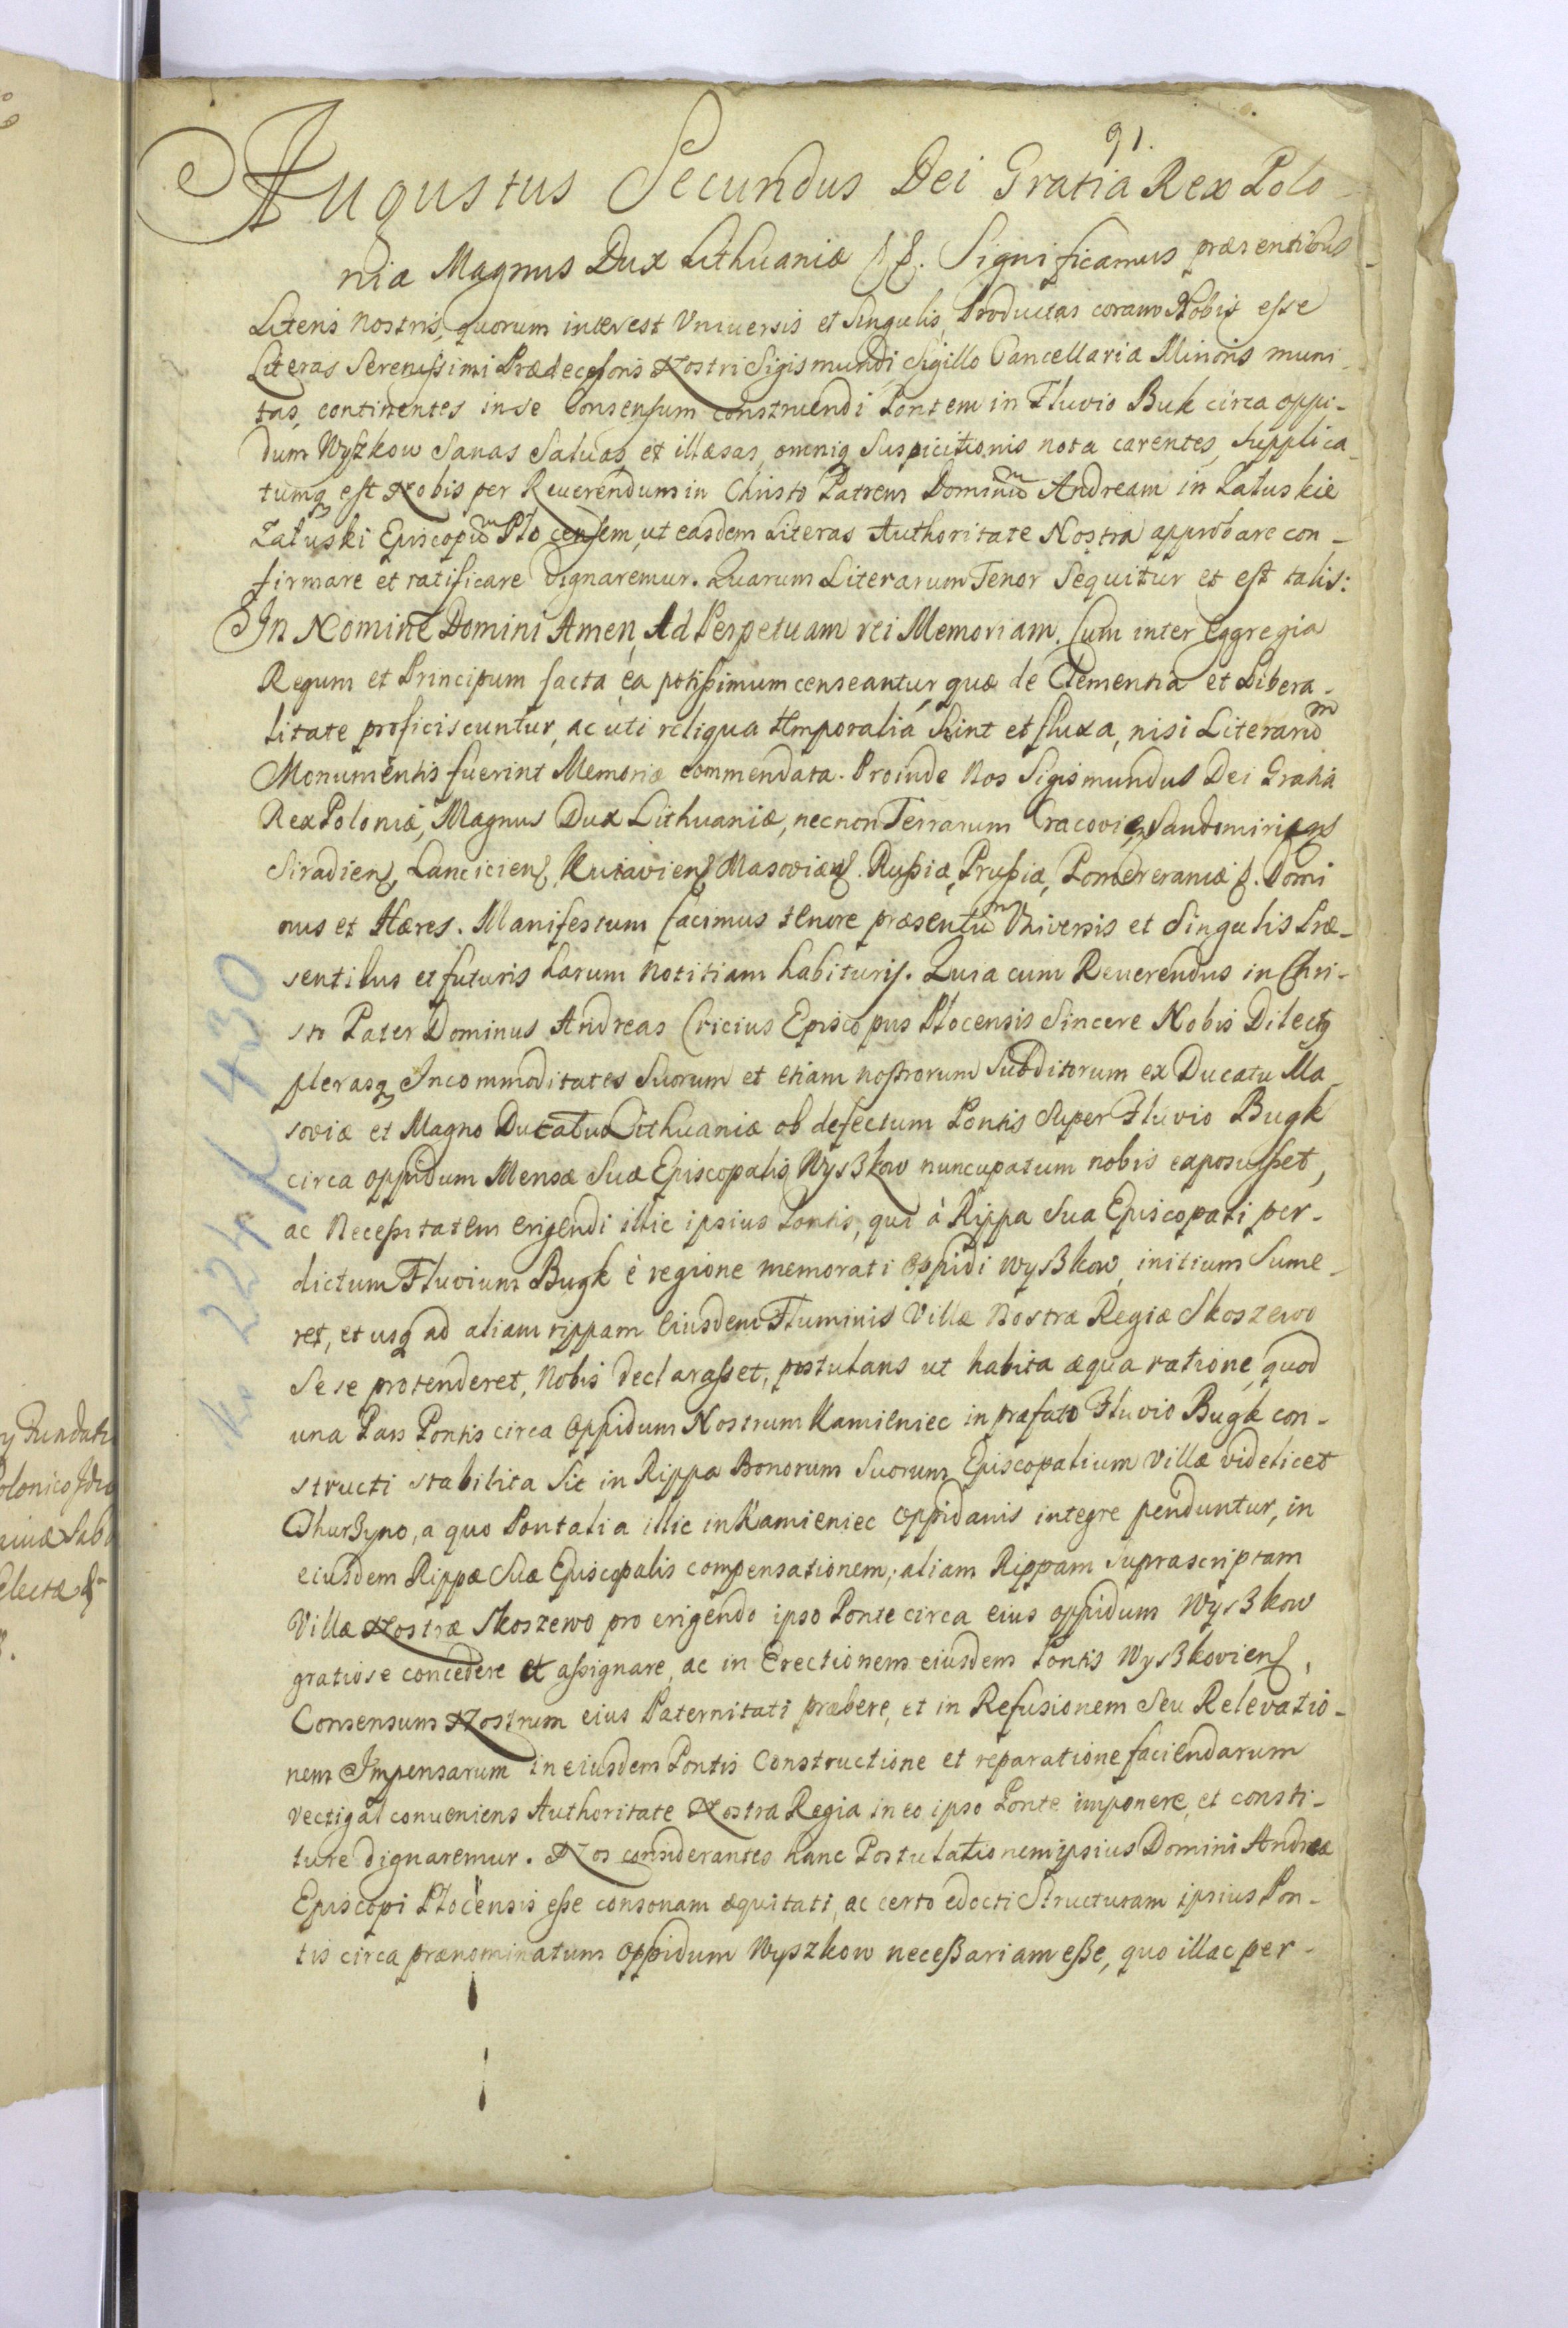 91.
Augustus Secundus Dei Gratia Rex Polo-
niæ Magnus Dux Lithuaniæ &&. Significamus præsentibus
Literis nostris, quorum interest Vniuersis et Singulis, Productas coram Nobis esse
Literas Serenissimi Prædecessoris Nostri Sigismundi, Sigillo Cancellaria Minoris muni-
tas, continentes in se Consensum construendi Pontem in Fluvio Buk circa oppi-
dum Wyszkow Sanas Saluas, et illæsas, omniq suspicitionis nota carentes, Supplica-
tumq est Nobis per Reuerendum in Christo Patrem Dominum Andream in Załuskie
Załuski Episcopum Płocensem, ut easdem Literas Authoritate Nostra approbare con-
firmare et ratificare dignaremur. Quarum Literarum Tenor Sequitur et est talis:
In Nomine Domini Amen, Ad Perpetuam rei Memoriam. Cum inter Eggregia
Regum et Principum facta ea potissimum censeantur, quæ de Clementia et Libera-
litate proficiscuntur, ac uti reliqua temporalia Sint et fluxa, nisi Literarum
Monumentis fuerint Memoriæ commendata. Proinde Nos Sigismundus Dei Gratia
Rex Poloniæ, Magnus Dux Lithuaniæ, necnon Terrarum Cracovien, Sandomiriens
Siradiens, Lanciciens, Kuiaviens, Masoviæ. Russiæ, Prussiæ, Pomereraniæ &. Domi
nus et Hæres. Manifestum facimus tenore præsentum Vniversis et Singulis Præ-
sentibus et futuris harum notitiam habituris. Quia cum Reuerendus in Chri-
sto Pater Dominus Andreas Cricius Episcopus Płocensis Sincere Nobis Dilectq
plerasq Incommoditates Suorum et etiam nostrorum Subditorum ex Ducatu Ma-
soviæ et Magno Ducatu Lithuaniæ ob defectum Pontis Super Fluvio Bugk
circa oppidum Mensæ Suæ Episcopalis Wysßkow nuncupatum nobis exposuisset,
ac Necessitatem erigendi illic ipsius Pontis, qui à Rippa Sua Episcopali per-
dictum Fluvium Bugk è regione memorati Oppidi Wyßkow, initium Sume-
ret, et usq ad aliam rippam Eiusdem Fluminis Villæ Nostræ Regiæ Skoszewo
Sese protenderet, Nobis declarasset, postulans ut habita æqua ratione, quod
una Pars Pontis circa Oppidum Nostrum Kamieniec in præfato Fluvio Bugk con-
structi stabilita Sit in Rippa Bonorum Suorum Episcopalium Villæ videlicet
Thurßyno, a quo Pontalia illic in Kamieniec Oppidanis integre penduntur, in
eiusdem Rippæ Suæ Episcopalis compensationem; aliam Rippam Suprascriptam
Villæ Nostræ Skoszewo pro erigendo ipso Ponte circa eius oppidum Wysßkow
gratiose concedere et assignare, ac in Erectionem eiusdem Pontis Wyßkoviens,
Consensum Nostrum eius Paternitati præbere, et in Refusionem Seu Relevatio-
nem Impensarum in eiusdem Pontis Constructione et reparatione faciendarum
vectigal conveniens Authoritate Nostra Regia in eo ipso Ponte imponere, et consti-
ture dignaremur. Nos considerantes hanc Postulationem ipsius Domini Andreæ
Episcopi Płocensis esse consonam æquitati, ac certo edocti Structuram ipsius Pon-
tis circa prænominatum Oppidum Wyszkow necessariam esse, quo illac per-
k. 224 / K 430